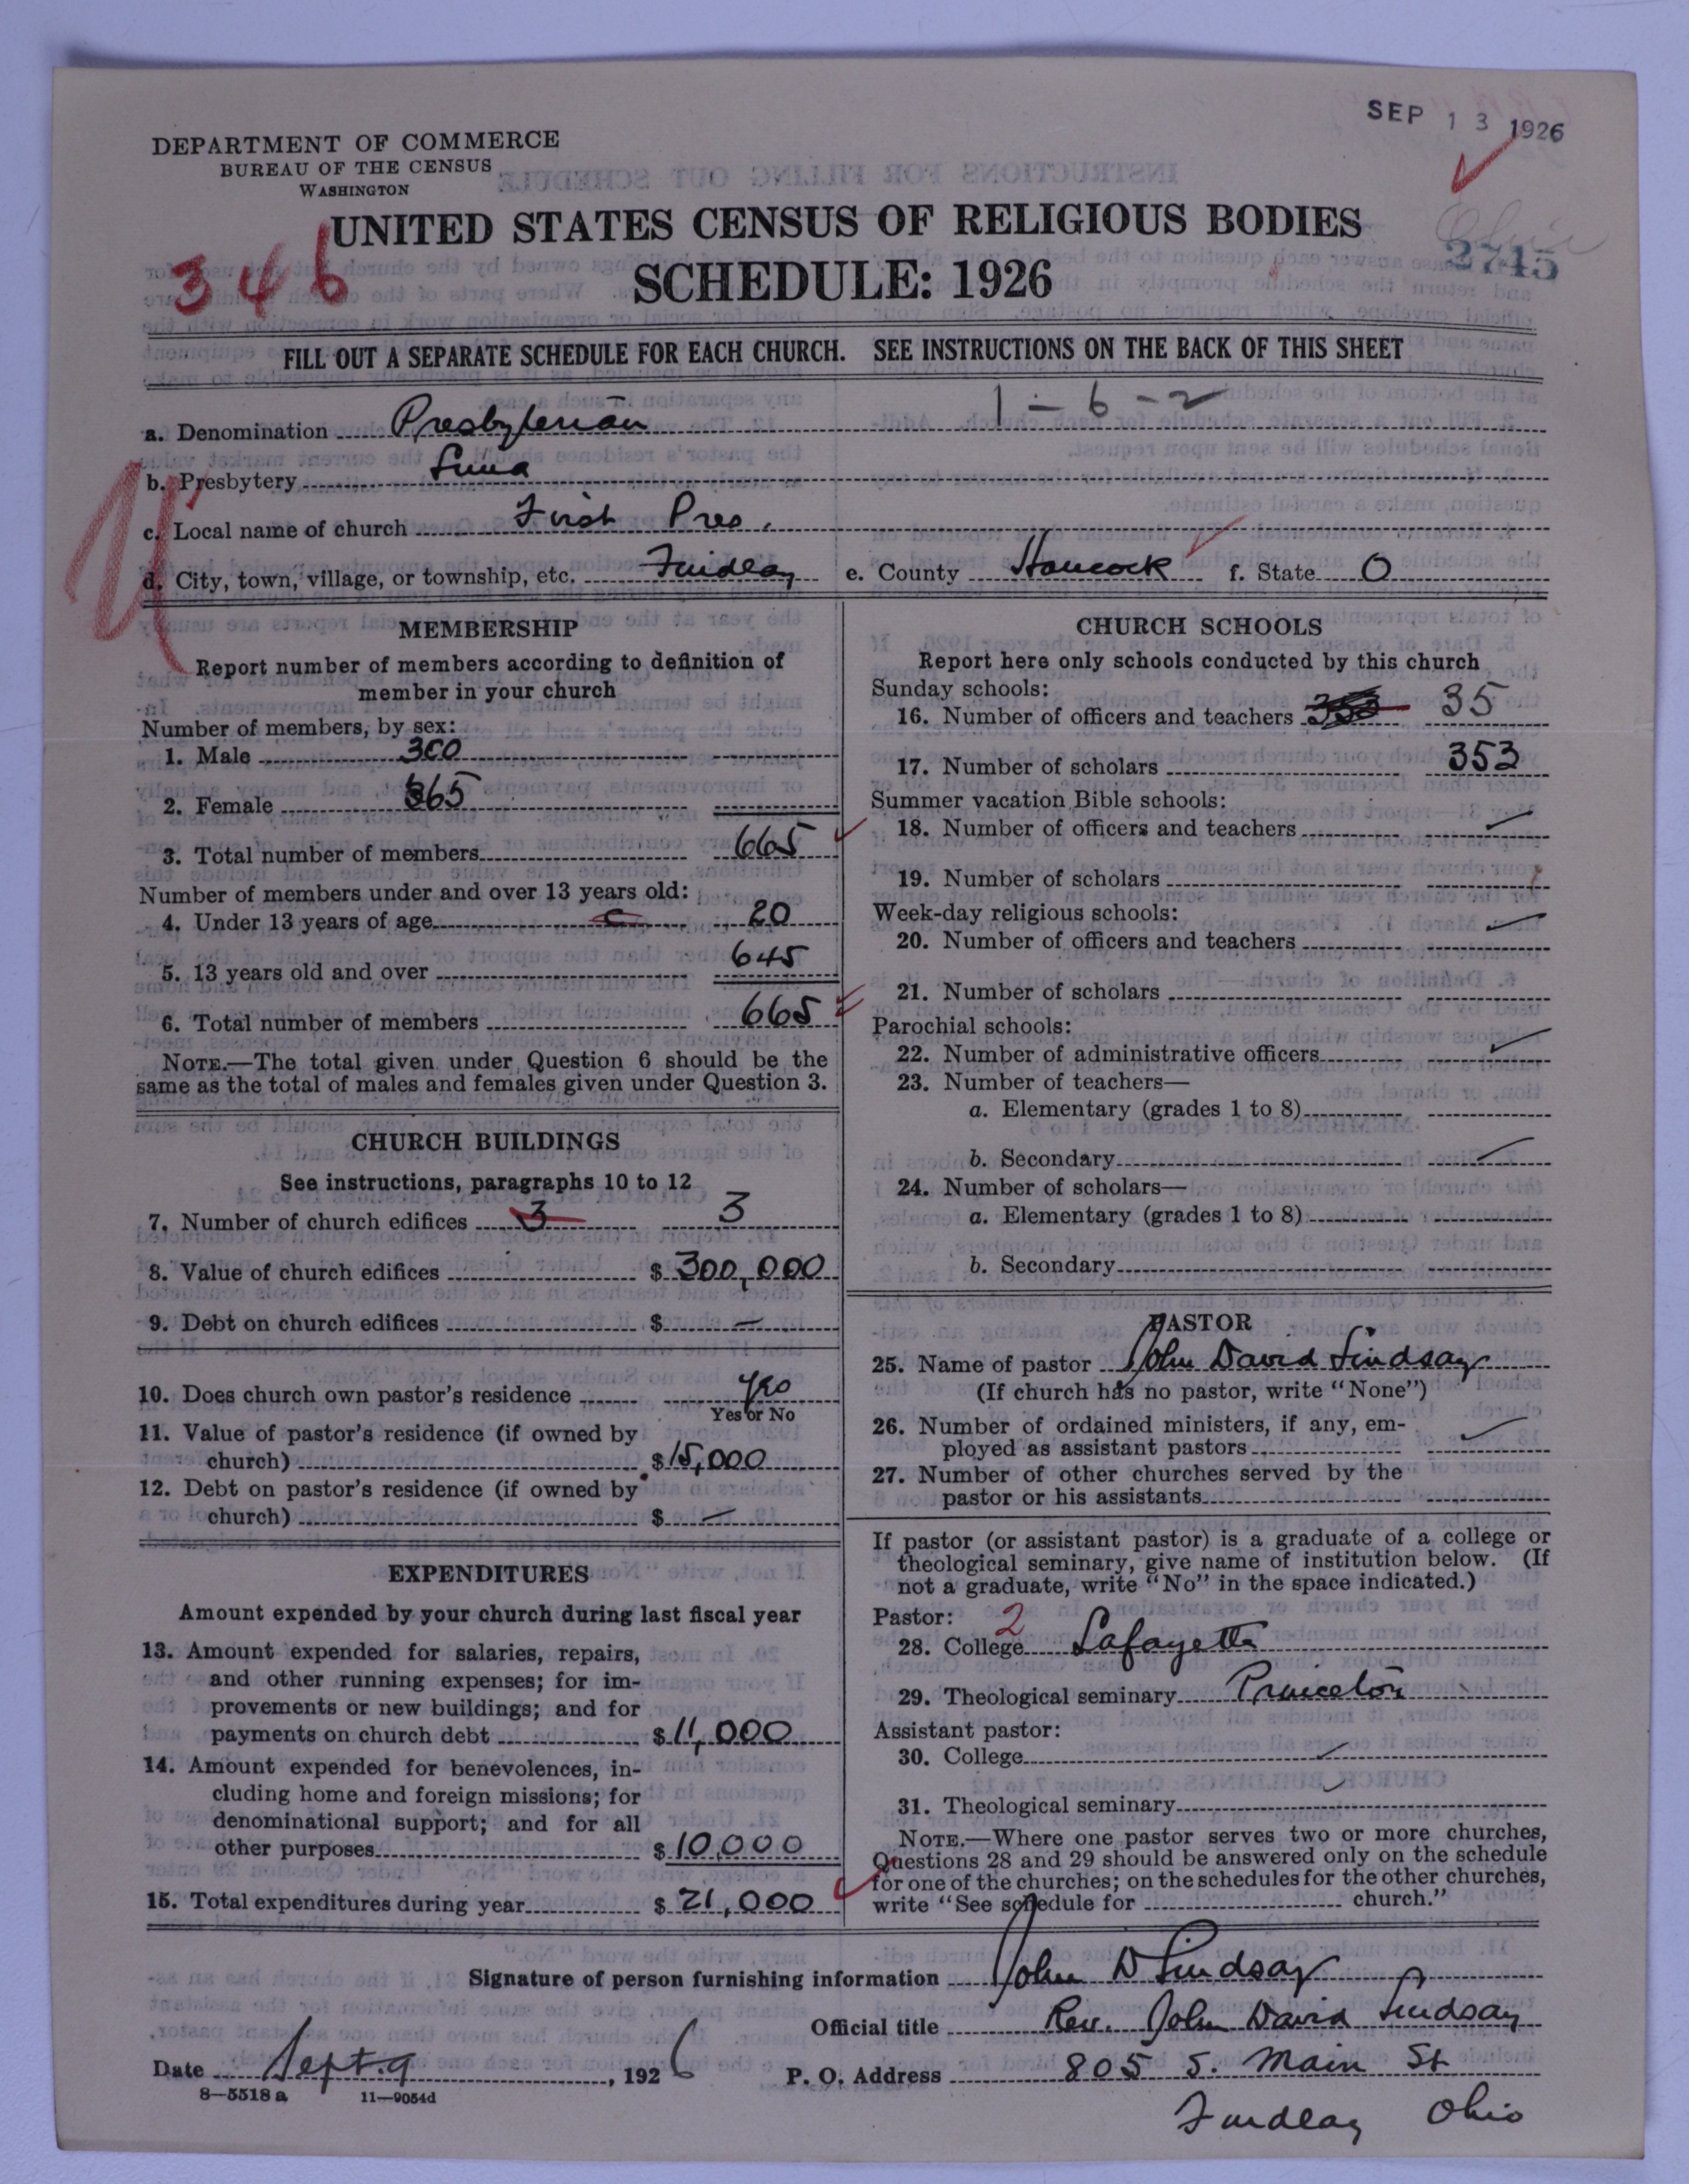 SEP 13 1926
DEPARTMENT OF COMMERCE
BUREAU OF THE CENSUS
WASHINGTON
UNITED STATES CENSUS OF RELIGIOUS BODIES
Ohio
2745
346
SCHEDULE: 1926
FILL OUT A SEPARATE SCHEDULE FOR EACH CHURCH. SEE INSTRUCTIONS ON THE BACK OF THIS SHEET
1-6-2
a. Denomination Presbyterian
b. Presbytery Lima
c. Local name of church First Pres.
d. City, town, village, or township, etc. Findlay e. County Hancock f. State O
MEMBERSHIP
Report number of members according to definition of
member in your church
Number of members, by sex:
1. Male 300
2. Female 365
3. Total number of members 665
Number of members under and over 13 years old:
4. Under 13 years of age 20
5. 13 years old and over 645
6. Total number of members 665
NOTE.—The total given under Question 6 should be the
same as the total of males and females given under Question 3.
CHURCH BUILDINGS
See instructions, paragraphs 10 to 12
7. Number of church edifices 3 3
8. Value of church edifices $ 300,000
9. Debt on church edifices $ —
10. Does church own pastor's residence yes
Yes or No
11. Value of pastor's residence (if owned by
church) $ 15,000
12. Debt on pastor's residence (if owned by
church) $ —
EXPENDITURES
Amount expended by your church during last fiscal year
13. Amount expended for salaries, repairs,
and other running expenses; for im-
provements or new buildings; and for
payments on church debt $ 11,000
14. Amount expended for benevolences, in-
cluding home and foreign missions; for
denominational support; and for all
other purposes $ 10,000
15. Total expenditures during year $ 21,000
CHURCH SCHOOLS
Report here only schools conducted by this church
Sunday schools:
16. Number of officers and teachers 353 35
17. Number of scholars 353
Summer vacation Bible schools:
18. Number of officers and teachers
19. Number of scholars
Week-day religious schools:
20. Number of officers and teachers
21. Number of scholars
Parochial schools:
22. Number of administrative officers
23. Number of teachers—
a. Elementary (grades 1 to 8)
b. Secondary
24. Number of scholars—
a. Elementary (grades 1 to 8)
b. Secondary
PASTOR
25. Name of pastor John David Lindsay
(If church has no pastor, write "None")
26. Number of ordained ministers, if any, em-
ployed as assistant pastors
27. Number of other churches served by the
pastor or his assistants
If pastor (or assistant pastor) is a graduate of a college or
theological seminary, give name of institution below. (If
not a graduate, write "No" in the space indicated.)
Pastor: 2
28. College Lafayette
29. Theological seminary Princeton
Assistant pastor:
30. College
31. Theological seminary
NOTE.—Where one pastor serves two or more churches,
Questions 28 and 29 should be answered only on the schedule
for one of the churches; on the schedules for the other churches,
write "See schedule for church."
Signature of person furnishing information John D Lindsay
Official title Rev. John David Lindsay
Date Sept. 9, 1926 P. O. Address 805 S. Main St
8—5518 a 11—9054d
Findlay Ohio